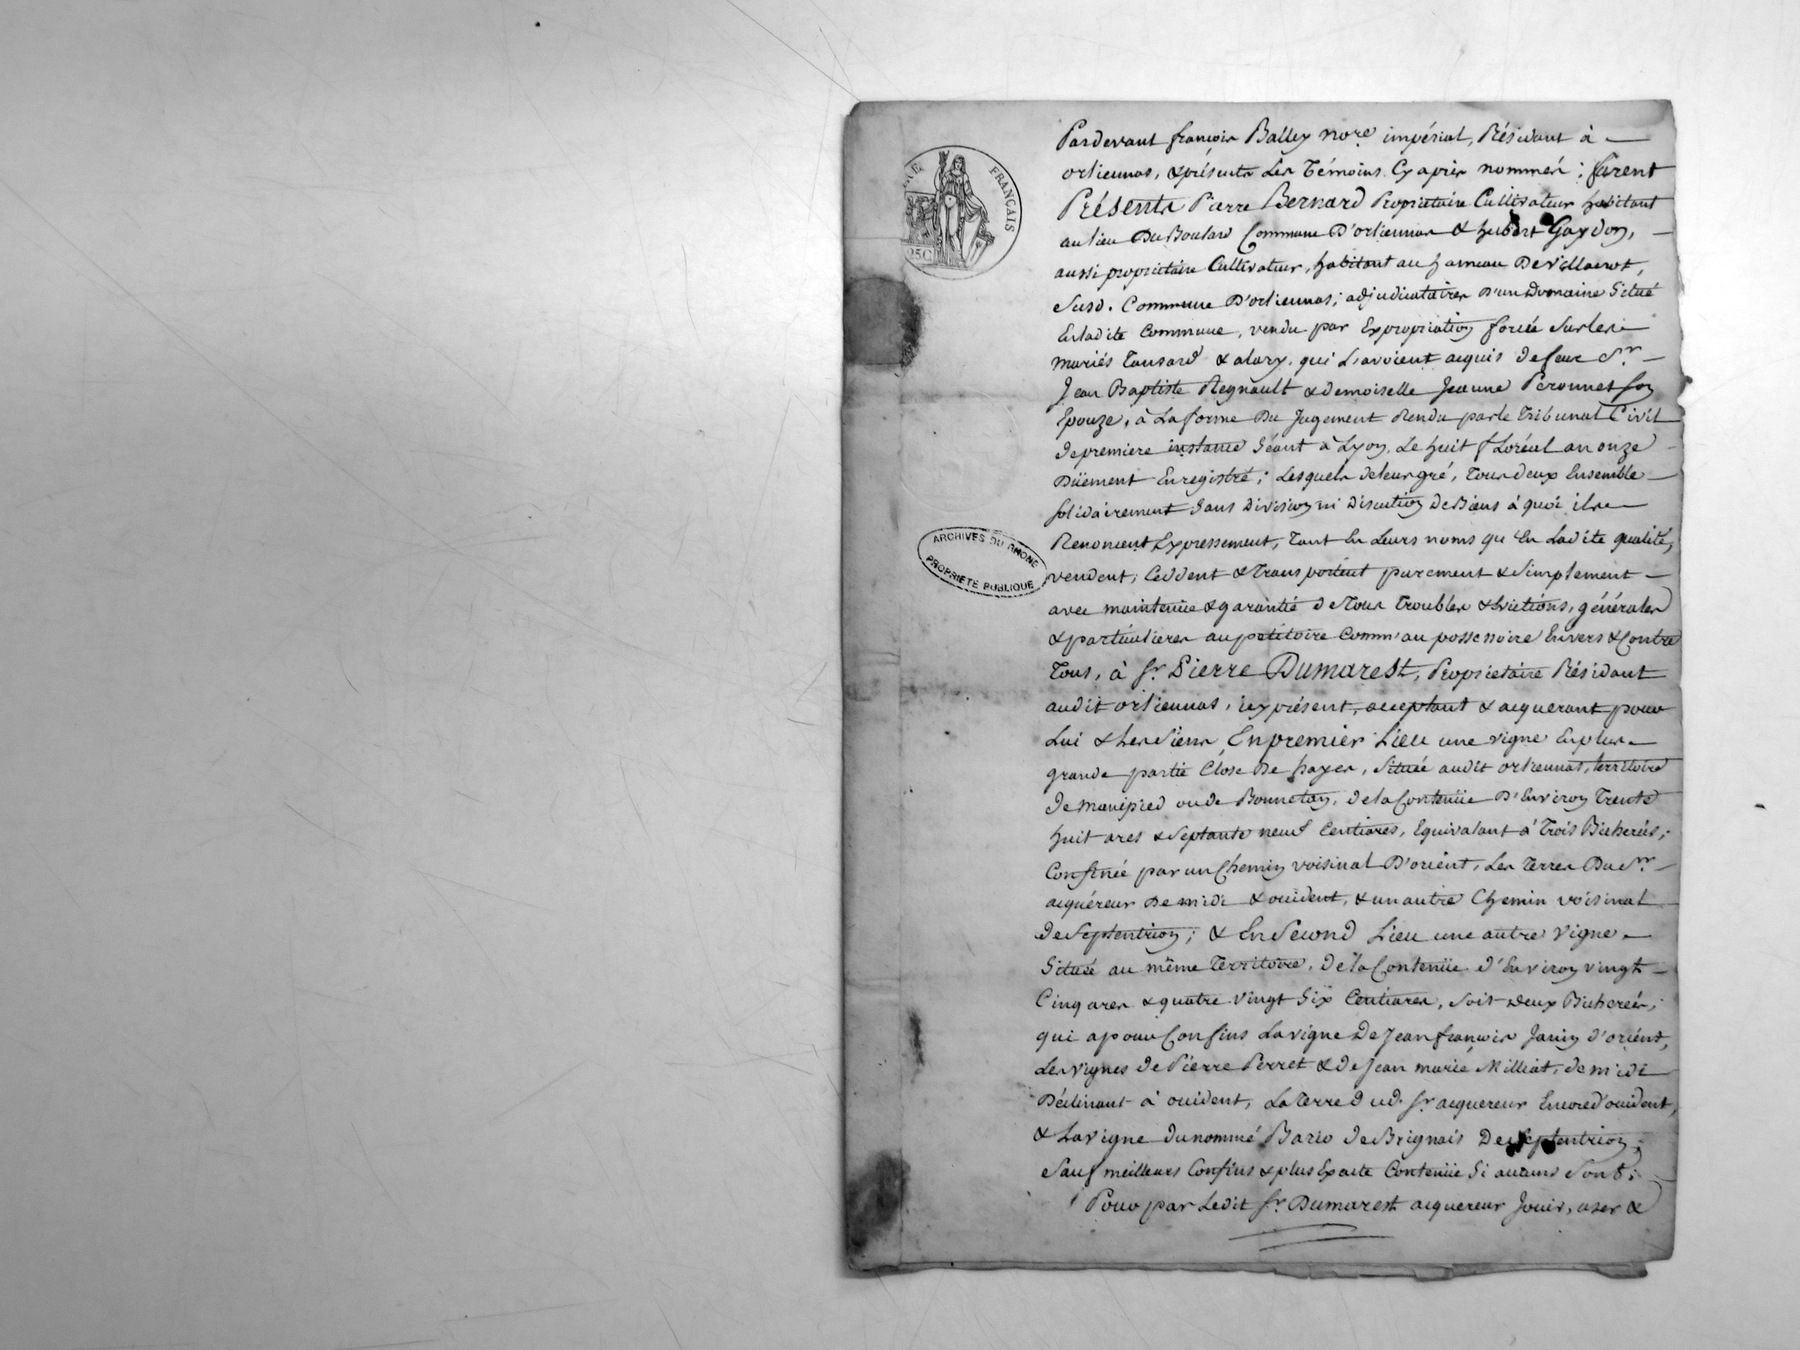 Pardevant françois Balley nore. impérial, Résidant à
orliennas, & présents Les Témoins Cy après nommés ; furent
Présents Pierre Bernard Propriétaire Cultivateur habitant
au lieu Du Boulard Commune D'orliennas & hubert Gaydon,
aussi propriétaire Cultivateur, habitant au hameau De
Susd. Commune D'orliennas ; adjudicataires D'un Domaine Situé
En ladite Commune, vendu par Expropriation forcée Sur les
mariés & alary, qui L'avoient acquis de feue Sr.
Jean Baptiste Regnault & demoiselle Jeanne Peronnet Son
Epouze, à La forme Du Jugement Rendu par le Tribunal Civil
de premiere instance Séant à Lyon, Le huit floréal an onze
Düement Enregistré ; Lesquels de leur gré, Tous deux Ensemble
Solidairement Sans Division ni Discution De Biens à quoi ils
Renoncent Expressement, Tant En Leurs noms qu'En Ladite qualité,
vendent, Ceddent & Transportent purement & Simplement
avec maintenüe & garantié de Tous Troubles & Evictions, générales
& particulieres au petitoire Comm'au possessoire Envers & Contre
Tous, à Sr. Pierre Dumarest, Propriétaire Résidant
audit orliennas, icy présent, acceptant & acquerant pour
Lui & Les Siens, En premier Lieu une vigne En plus
grande partie Close De hayes, Située audit orliennas, territoire
de manipied ou de Bonneton, de la Contenüe D'Environ Trente
huit ares & Septante neuf Centiares, Equivalant à Trois Bicherées ;
Confinée par un Chemin voisinal D'orient, Les Terres Du Sr.
acquéreur De midi & occident, & un autre Chemin voisinal
de Septentrion ; & En Second Lieu une autre Vigne
Située au même Territoire, de la Contenüe d'Environ vingt
Cinq ares & quatre vingt Six Centiares, Soit Deux Bicherées ;
qui a pour Confins La vigne De Jean françois Janin d'orient,
Les vignes de Pierre Perret & de Jean marie Milliat, de midi
Déclinant à occident, La Terre dud. Sr. acquereur Encore d'occident,
& La vigne du nommé Bario de Brignais De Septentrion ;
Sauf meilleurs Confins & plus Exacte Contenüe Si aucuns Sont ;
Pour par Ledit Sr. Dumarest acquereur Jouir, user &
FRANÇAIS
25C
ARCHIVES DU RHONE
PROPRIETE PUBLIQUE